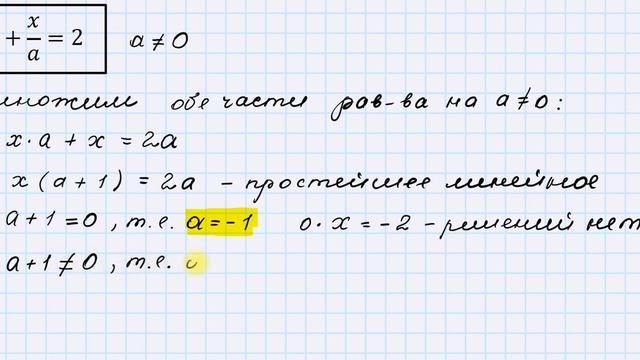 + x/a = 2   a ≠ 0
множим обе части рав-ва на a≠0:
x·a + x = 2a
x(a+1) = 2a - простейшее линейное
a+1=0, т.е. a=-1   0·x=-2 - решений нет
a+1≠0, т.е.